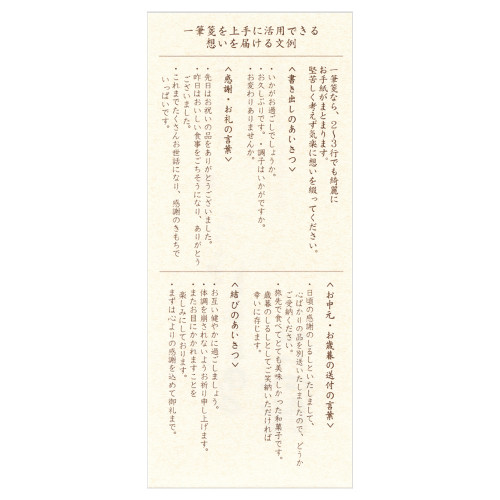 一筆箋を上手に活用できる
想いを届ける文例
一筆箋なら、2〜3行でも綺麗に
お手紙がまとまります。
堅苦しく考えず気楽に想いを綴ってください。
〈書き出しのあいさつ〉
・いかがお過ごしでしょうか。
・お久しぶりです。・調子はいかがですか。
・お変わりありませんか。
〈感謝・お礼の言葉〉
・先日はお祝いの品をありがとうございました。
・昨日はおいしい食事をごちそうになり、ありがとう
ございました。
・これまでたくさんお世話になり、感謝のきもちで
いっぱいです。
〈お中元・お歳暮の送付の言葉〉
・日頃の感謝のしるしといたしまして、
心ばかりの品を別送いたしましたので、どうか
ご受納ください。
・旅先で食べてとても美味しかった和菓子です。
歳暮のしるしとしてご笑納いただければ
幸いに存じます。
〈結びのあいさつ〉
・お互い健やかに過ごしましょう。
・体調を崩されないようお祈り申し上げます。
・またお目にかかれますことを
楽しみにしております。
・まずは心よりの感謝を込めて御礼まで。